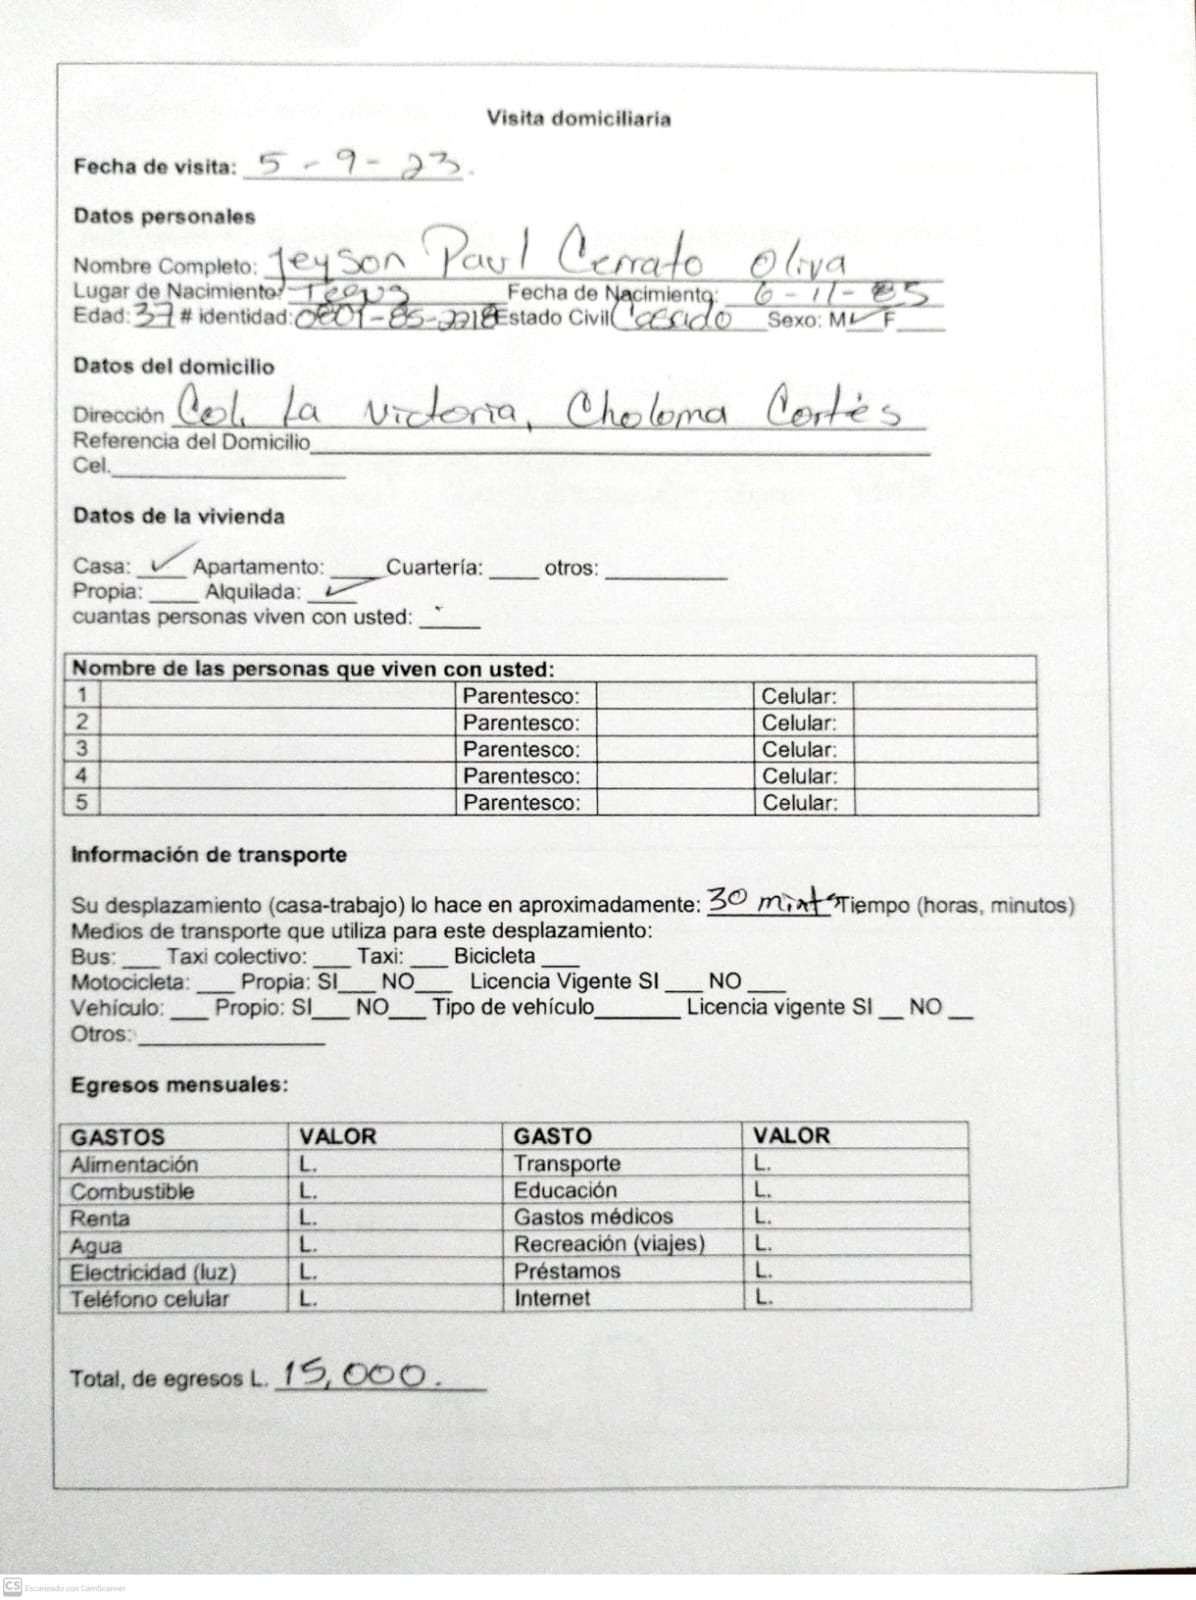 Visita domiciliaria
Fecha de visita: 5-9-23.
Datos personales
Nombre Completo: Jeyson Paul Cerrato Oliva
Lugar de Nacimiento: Fecha de Nacimiento: 6-11-85
Edad: 37 # identidad: 0801-85-2218 Estado Civil Casado Sexo: M ✓ F
Datos del domicilio
Dirección Col. La Victoria, Choloma Cortés
Referencia del Domicilio
Cel.
Datos de la vivienda
Casa: ✓ Apartamento: ____ Cuartería: ____ otros: ____
Propia: ____ Alquilada: ✓
cuantas personas viven con usted: ____
Nombre de las personas que viven con usted:
1 Parentesco: Celular:
2 Parentesco: Celular:
3 Parentesco: Celular:
4 Parentesco: Celular:
5 Parentesco: Celular:
Información de transporte
Su desplazamiento (casa-trabajo) lo hace en aproximadamente: 30 Tiempo (horas, minutos)
Medios de transporte que utiliza para este desplazamiento:
Bus: ___ Taxi colectivo: ___ Taxi: ___ Bicicleta ___
Motocicleta: ___ Propia: SI___ NO___ Licencia Vigente SI ___ NO ___
Vehículo: ___ Propio: SI___ NO___ Tipo de vehículo_______ Licencia vigente SI __ NO __
Otros:
Egresos mensuales:
GASTOS VALOR GASTO VALOR
Alimentación L. Transporte L.
Combustible L. Educación L.
Renta L. Gastos médicos L.
Agua L. Recreación (viajes) L.
Electricidad (luz) L. Préstamos L.
Teléfono celular L. Internet L.
Total, de egresos L. 15,000.
CS Escaneado con CamScanner